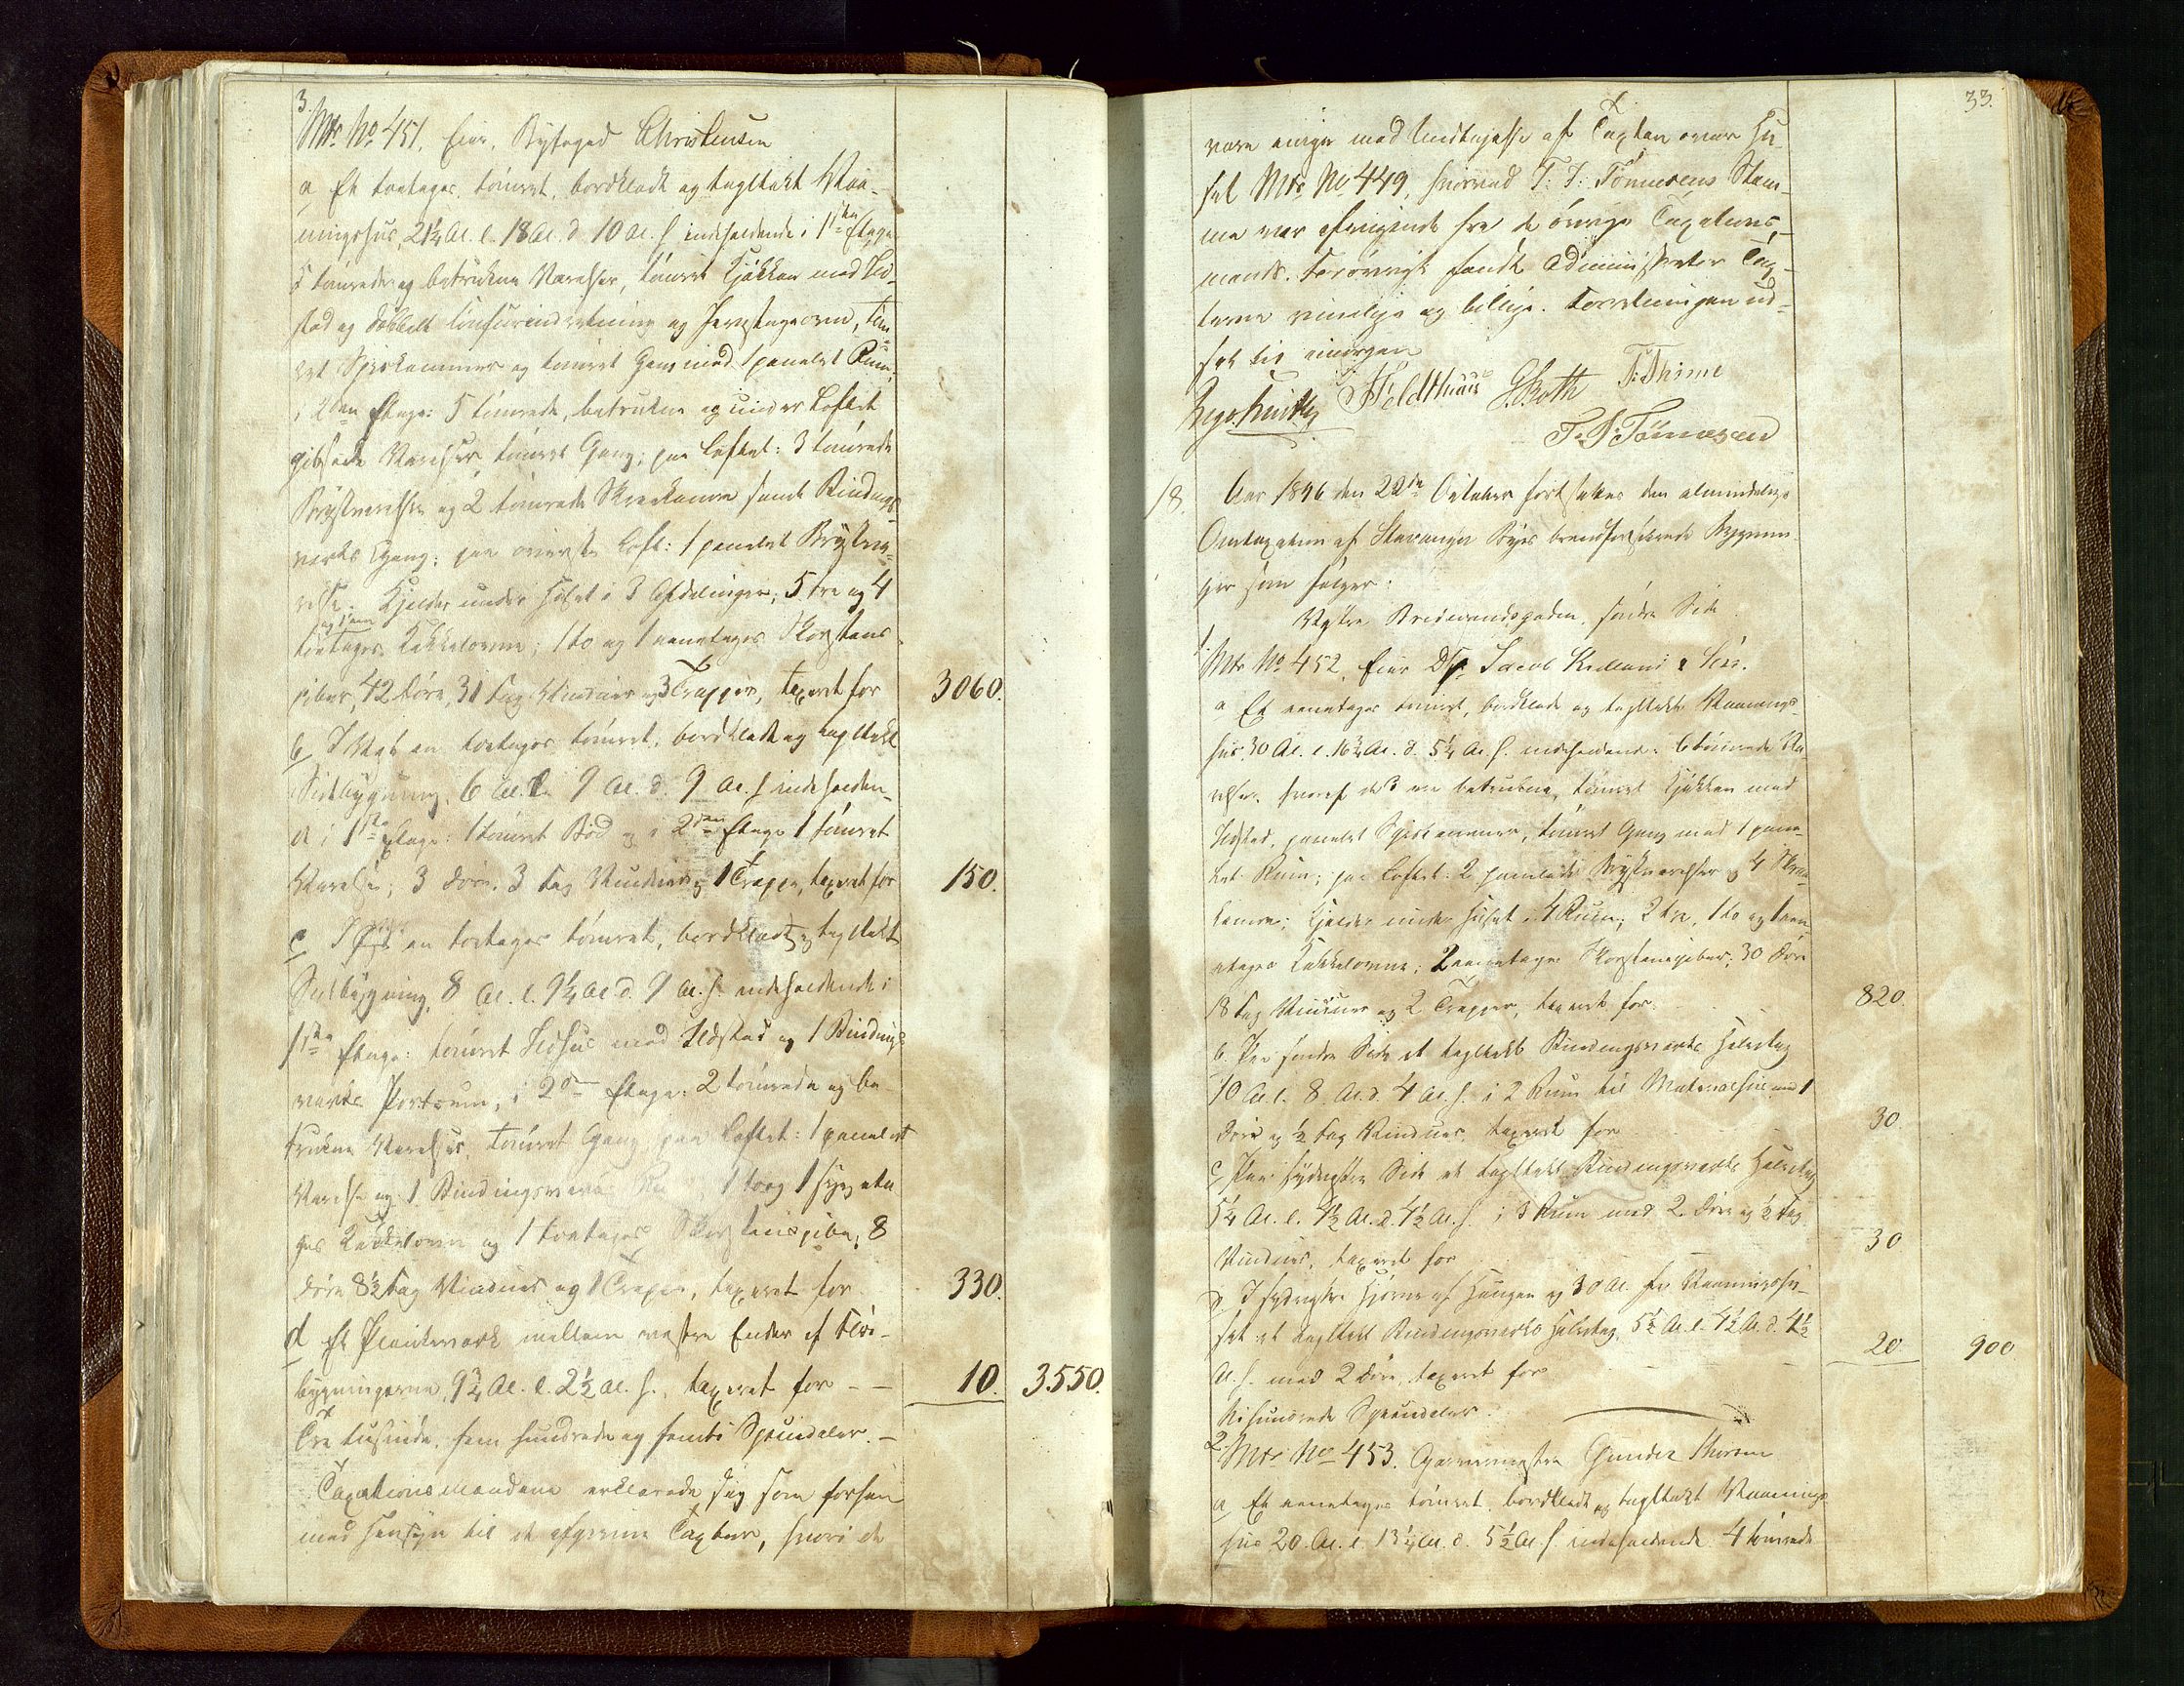 3.
Mtr. No 451. Eier, Byfoged Christensen
a Et toetages tømret, bordklædt og tagltekt Vaa-
ningshus, 21¼ Al. l. 18 Al. d. 10 Al. h. indeholdende i 1ste Etage
5 tømrede og betrukne Værelser, tømret Kjøkken med Ild-
sted og dobbelt og , tøm-
ret Spiskammer og tømret Gang med 1 panelet Rum;
i 2den Etage: 5 tømrede, betrukne og under Loftet
gibsede Værelser, tømret Gang; paa Loftet: 3 tømrede
Kvistværelser og 2 tømrede Skraakamre samt Bindings-
verks Gang; paa øverste Loft: 1 panelet Kvistvæ-
relse. Kjelder under Huset i 3 Afdelinger; 5 tre og 4
toetages Kakkelovne; 1 to og 1 eenetages Skorstens-
piber, 42 Døre, 31 Fag Vinduer og 3 Trapper, taxeret for 3060.
b I Vest en toetages tømret, bordklædt og tagltekt
Sidebygning, 6 Al. l. 9 Al. d. 9 Al. h. indeholden-
de i 1ste Etage: 1 tømret Bod og i 2den Etage 1 tømret
Værelse; 3 Døre, 3 Fag Vinduer og 1 Trappe, taxeret for 150.
c I Øst en toetages tømret, bordklædt og tagltekt
Sidebygning, 8 Al. l. 9¼ Al. d. 9 Al. h. indeholdende i
1ste Etage: tømret Ildhus med Ildsted og 1 Bindings-
verks Portrum, i 2den Etage: 2 tømrede og be-
trukne Værelser, tømret Gang, paa Loftet: 1 panelet
Værelse og 1 Bindingsverks Rum, 1 to og 1
Kakkelovn og 1 toetages Skorstenspibe; 8
Døre 8½ Fag Vinduer og 1 Trappe, taxeret for 330.
d Et Plankeverk mellem vestre Ender af Side-
bygningerne, 9¾ Al. l. 2½ Al. h., taxeret for - - 10. 3550.
Tre tusinde, fem hundrede og femti Speciedaler. -
Taxationsmændene erklærede sig som forhen
med Hensyn til de afgivne Taxter, hvori de
33.
vare enige med Undtagelse af Taxten over Hu-
set Mtr. No 449, hvorved T. S. Tønnesens Stem-
me var afvigende fra de øvrige Taxations-
mænds. Forøvrigt fandt Administrator Tax-
terne rimelige og billige. Forretningen ud-
sat til imorgen
Feldthuus G. Roth T. Thime
T. S. Tönnesen
18. Aar 1846 den 22de October fortsattes den almindelige
Omtaxation af Stavanger Byes brandforsikrede Bygnin-
ger som følger:
Vestre Bredevandsgaden, søndre Side
1. Mtr. No 452. Eier Jacob Kielland & Søn.
a Et eenetages tømret, bordklædt og tagltekt Vaanings-
hus, 30 Al. l. 16¾ Al. d. 5¼ Al. h. indeholdende: 6 tømrede Væ-
relser, hvoraf de 3 ere betrukne, tømret Kjøkken med
Ildsted, panelet Spiskammer, tømret Gang med 1 pane-
let Rum; paa Loftet: 2 panelede Kvistværelser og 4 Skraa-
kamre; Kjelder under Huset i 4 Rum; 2 tre, 1 to og 1 een-
etages Kakkelovne; 2 eenetages Skorstenspiber; 30 Døre
18 Fag Vinduer og 2 Trapper, taxeret for 820.
b. Paa søndre Side et tagltekt Bindingsverks Halvtag
10 Al. l. 8 Al. d. 4 Al. h. i 2 Rum til Materialhus med 1
Dør og ½ Fag Vindues, taxeret for 30.
c Paa sydvestre Side et tagltekt Bindingsverks Halvtag
5¼ Al. l. 4½ Al. d. 4½ Al. h. i 3 Rum med 2 Døre og ½ Fag
Vindues, taxeret for 30
d I sydvestre Hjørne af Haugen og 30 Al. fra Vaaningshu-
set et tagltekt Bindingsverks Halvtag, 5½ Al. l. 4½ Al. d. 4½
Al. h. med 2 Døre, taxeret for 20. 900
Ni hundrede Speciedaler.
2. Mtr. No 453. Garvermester Gunder Thorsen
a Et eenetages tømret, bordklædt og tagltekt Vaanings-
hus 20 Al. l. 13¼ Al. d. 5½ Al. h. indeholdende 4 tømrede